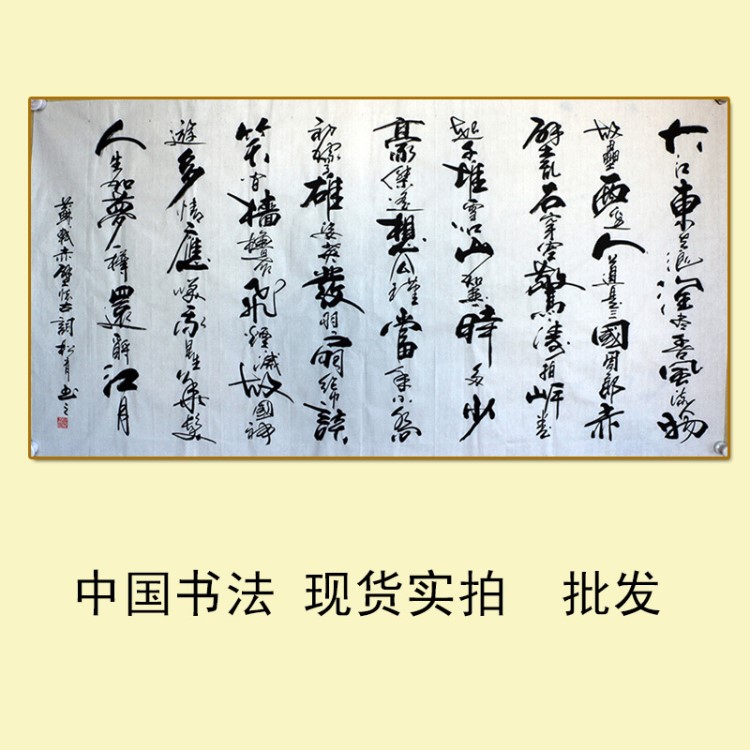 大江東去浪淘尽千古風流人物
故壘西邊人道是三國周郎赤
壁乱石穿空驚濤拍岸卷
起千堆雪江山如畫一時多少
豪傑遙想公瑾當年小喬
初嫁了雄姿英發羽扇綸巾談
笑間檣櫓灰飛煙滅故國神
遊多情應笑我早生華髮
人生如夢一樽還酹江月
蘇軾赤壁懷古詞 松月書之
中国书法 现货实拍 批发